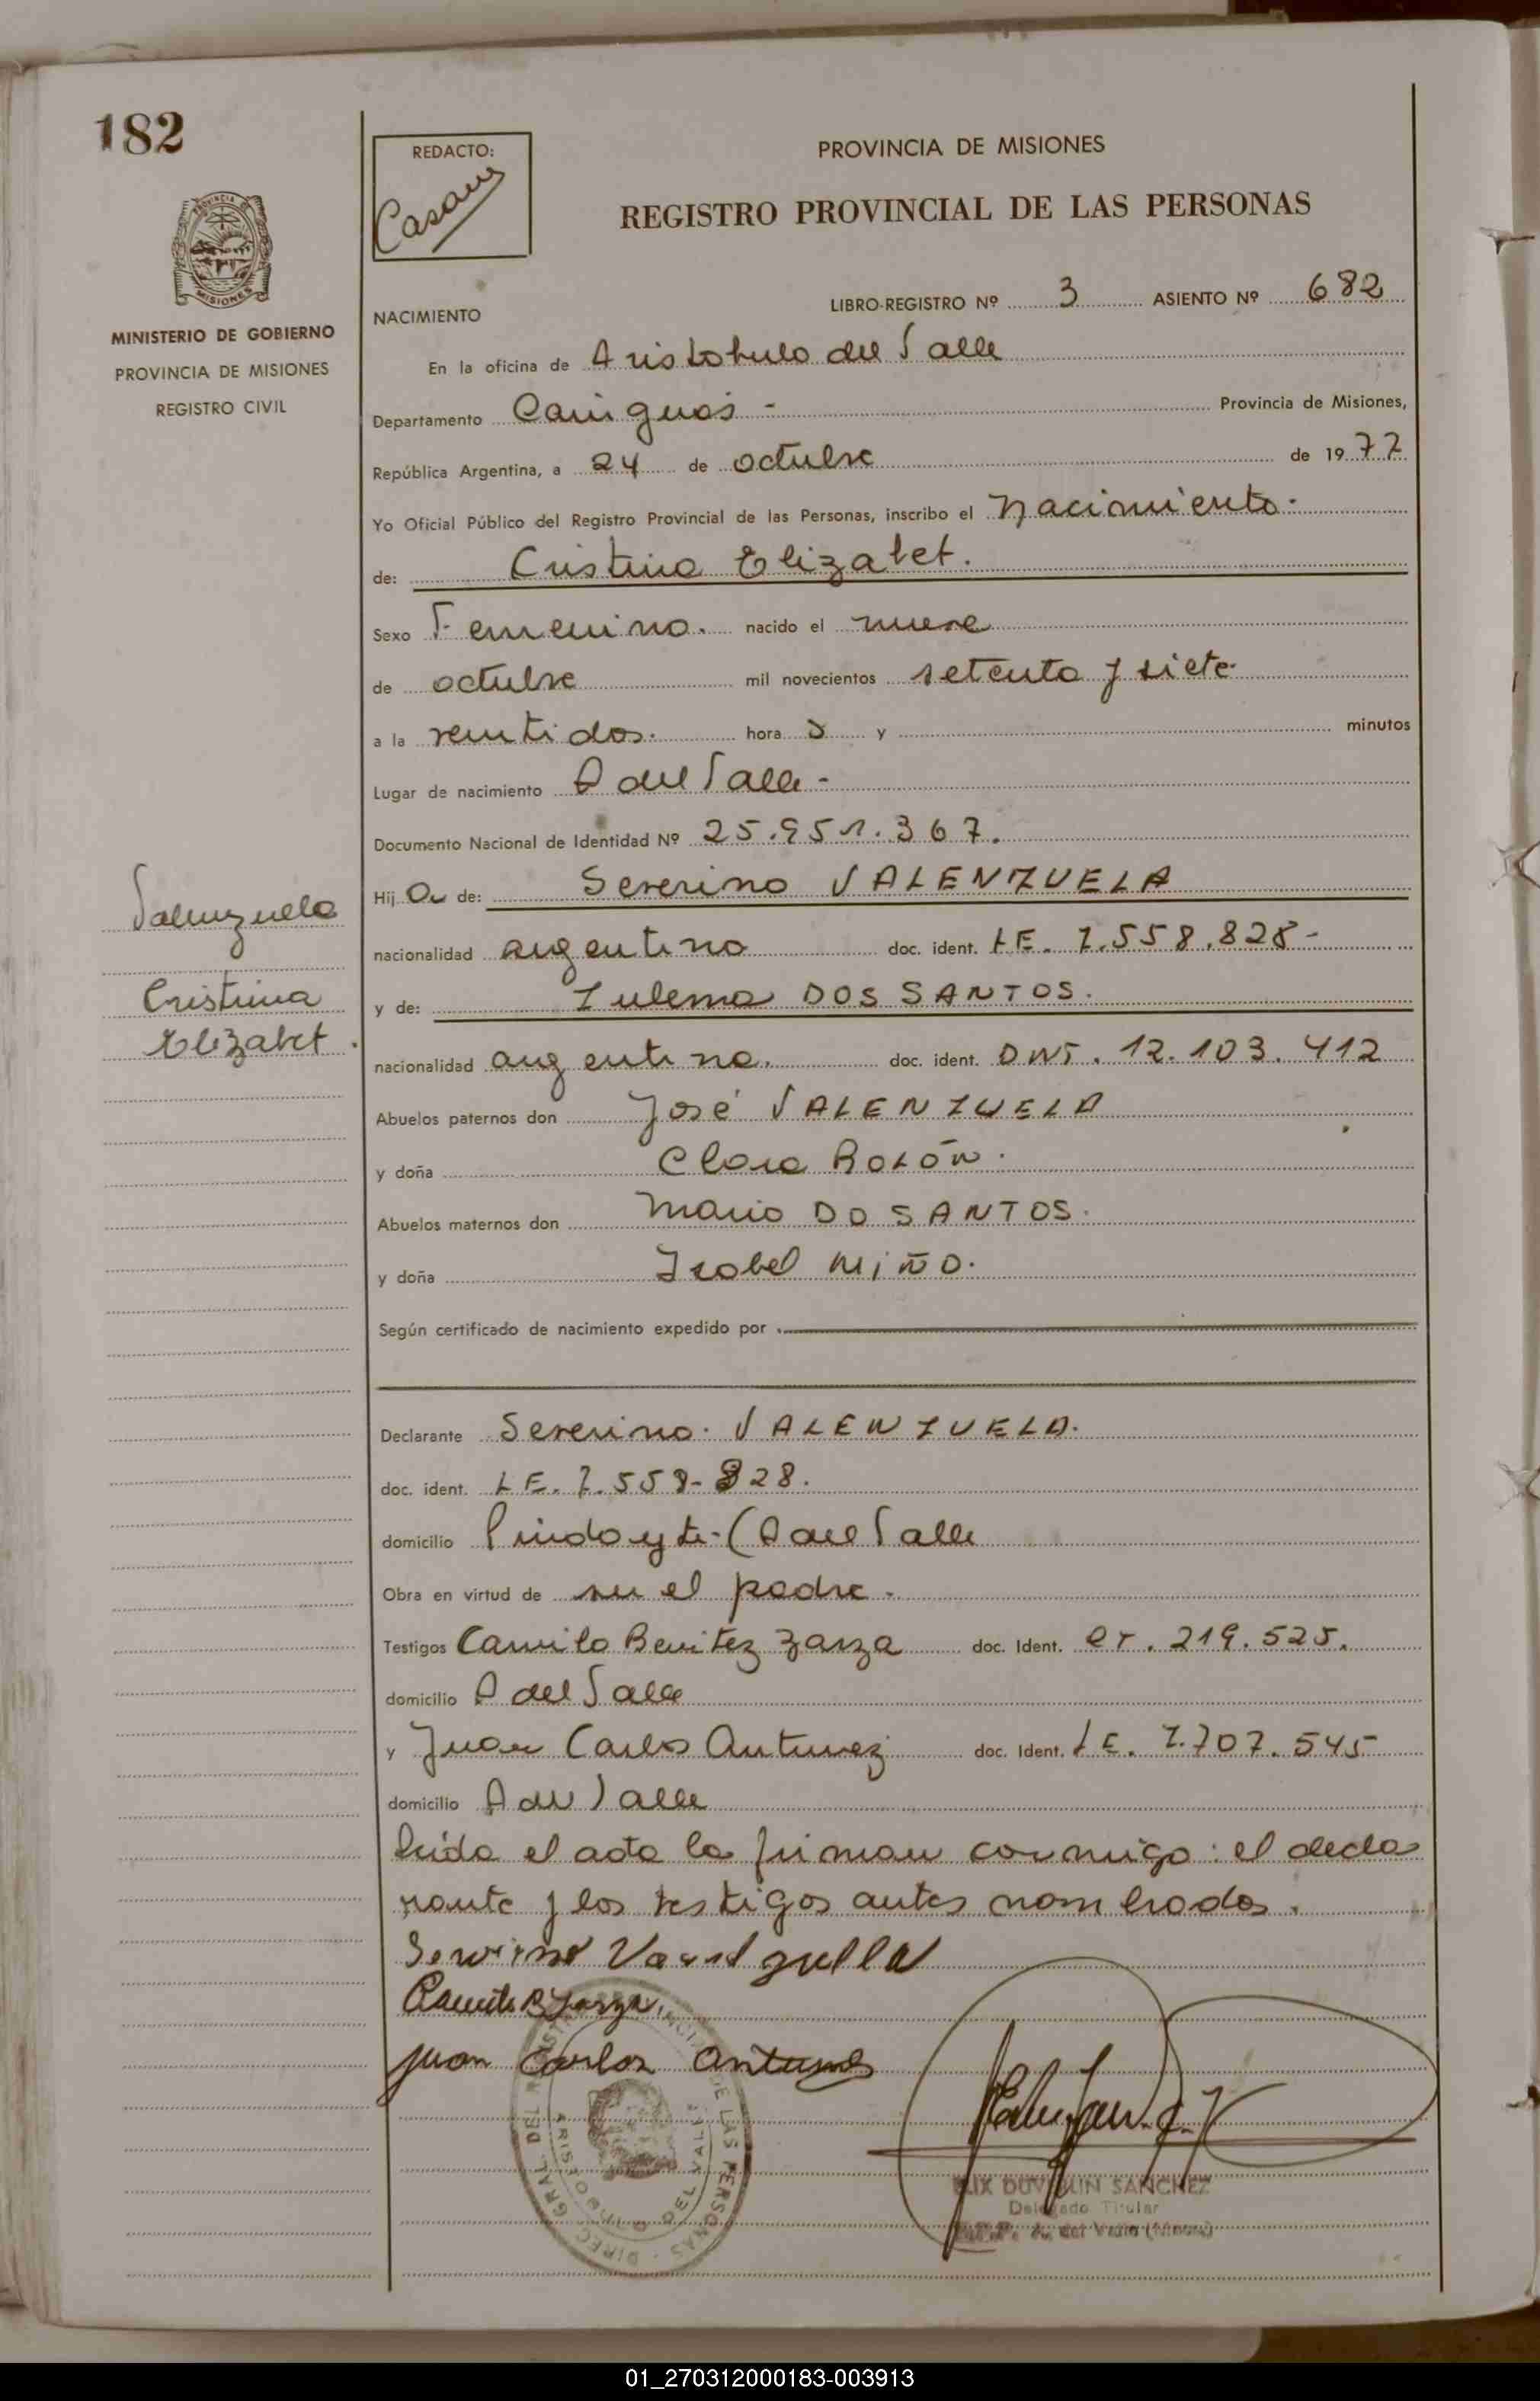 182
REDACTO:
Casaru
PROVINCIA DE MISIONES
REGISTRO PROVINCIAL DE LAS PERSONAS
MISIONES
MINISTERIO DE GOBIERNO
PROVINCIA DE MISIONES
REGISTRO CIVIL
NACIMIENTO
LIBRO-REGISTRO Nº 3 ASIENTO Nº 682
En la oficina de Aristobulo del Valle
Departamento Cainguas - Provincia de Misiones,
República Argentina, a 24 de octubre de 1977
Yo Oficial Público del Registro Provincial de las Personas, inscribo el Nacimiento.
de: Cristina Elizabet.
Sexo Femenino. nacido el nueve
de octubre mil novecientos setenta y siete
a la ventidos. hora s y minutos
Lugar de nacimiento A del Valle -
Documento Nacional de Identidad Nº 25.951.367.
Hij a de: Severino VALENZUELA
nacionalidad argentino doc. ident. LE. 7.558.828-
y de: Zulema DOS SANTOS.
nacionalidad argentina. doc. ident. DNI. 12.103.412
Valenzuela
Cristina
Elizabet.
Abuelos paternos don José VALENZUELA
y doña Clara ROLÓN.
Abuelos maternos don Mario DO SANTOS.
y doña Isabel MIÑO.
Según certificado de nacimiento expedido por
Declarante Severino. VALENZUELA.
doc. ident. LE. 7.558-828.
domicilio Pindoyti-(A del Valle
Obra en virtud de ser el padre.
Testigos Camilo Benitez Zarza doc. Ident. 219.525.
domicilio A del Valle
y Juan Carlos Antunez doc. Ident. LE. 7.707.545
domicilio A del Valle
Leida el acta la firman conmigo: el decla
rante y los testigos antes nombrados.
Juan Carlos Antunes
DUVILIN SANCHEZ
Delegado Titular
A. del Valle (Mnes)
01_270312000183-003913